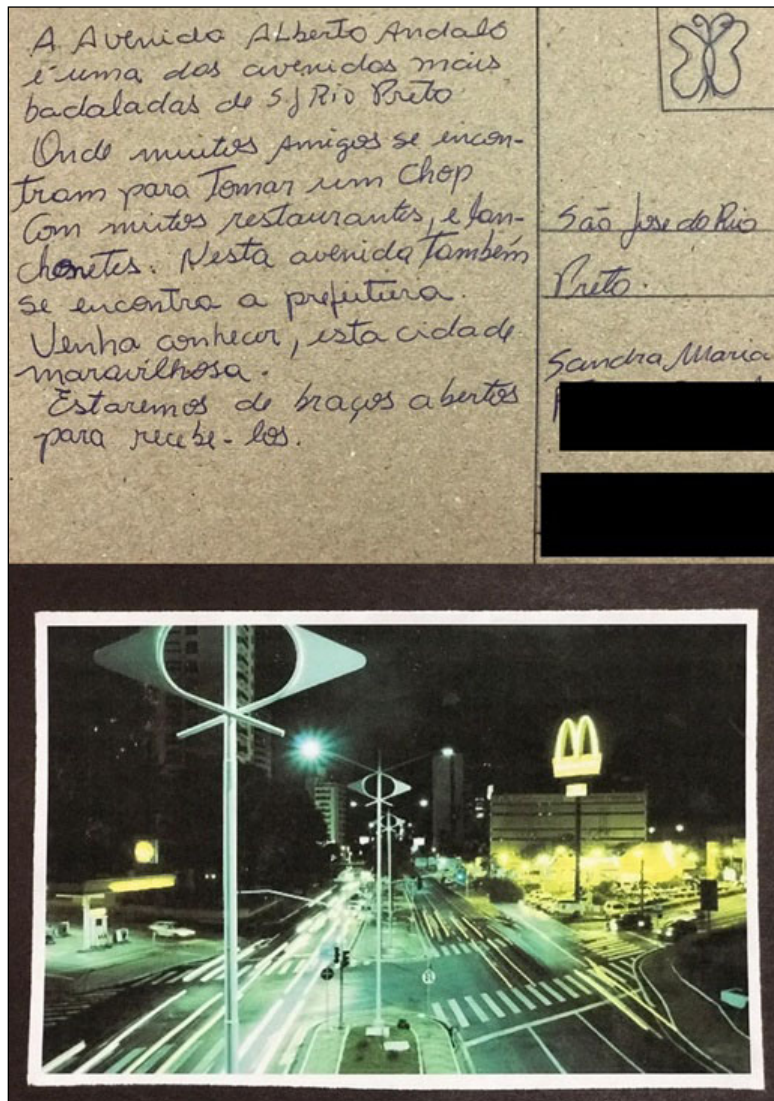 A Avenida ALberto Andaló
é uma das avenidas mais
badaladas de SJ Rio Preto
Onde muitos Amigos se encon-
tram para Tomar um Chop
Com muitos restaurantes, e lan-
chonetes. Nesta avenida Também
se encontra a prefeitura.
Venha conhecer, esta cidade
maravilhosa.
Estaremos de braços abertos
para recebe-los.
São Jose do Rio
Preto.
Sandra Maria
M